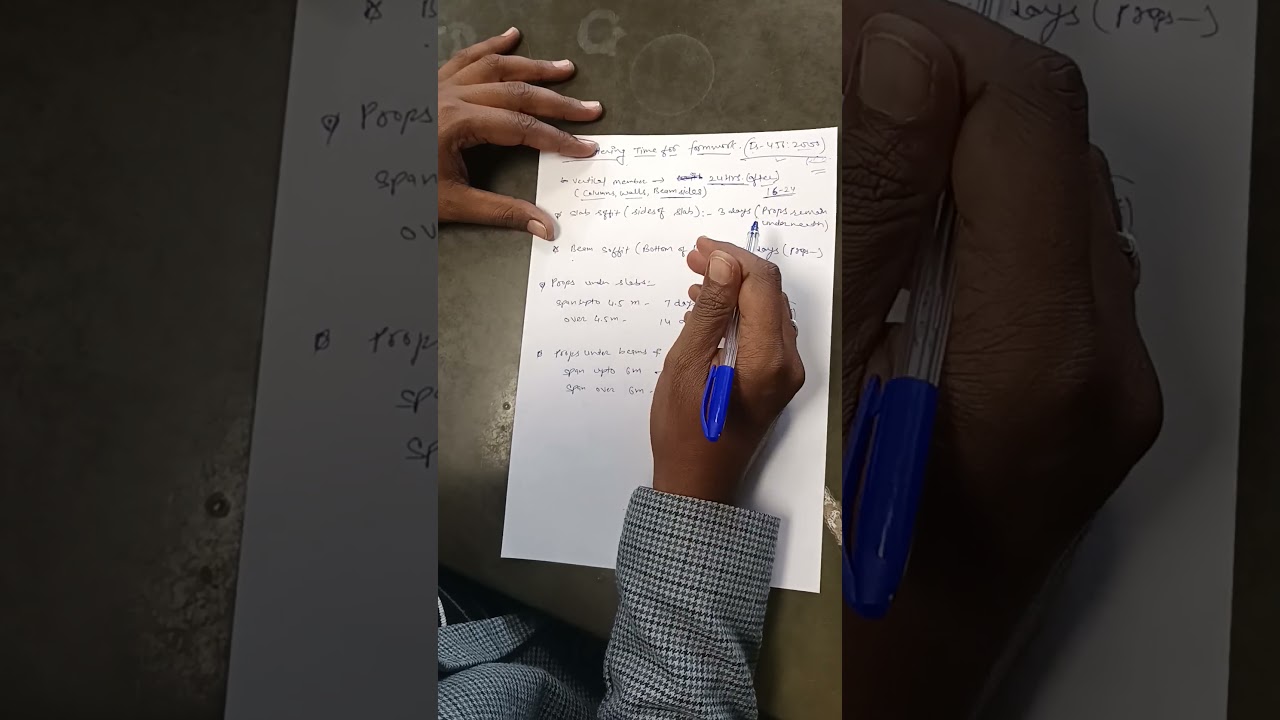 ering Time for formwork. (Is-456:2000)
Vertical member → 24Hrs. (after)
(Columns, Walls, Beam sides) 16-24
Slab soffit (sides of slab) :- 3 days (Props
underneath)
Beam Soffit (Bottom of days (props-)
Props under slabs:-
span upto 4.5 m - 7 day
over 4.5m - 14 d
Props under beams &
span upto 6m -
span over 6m -